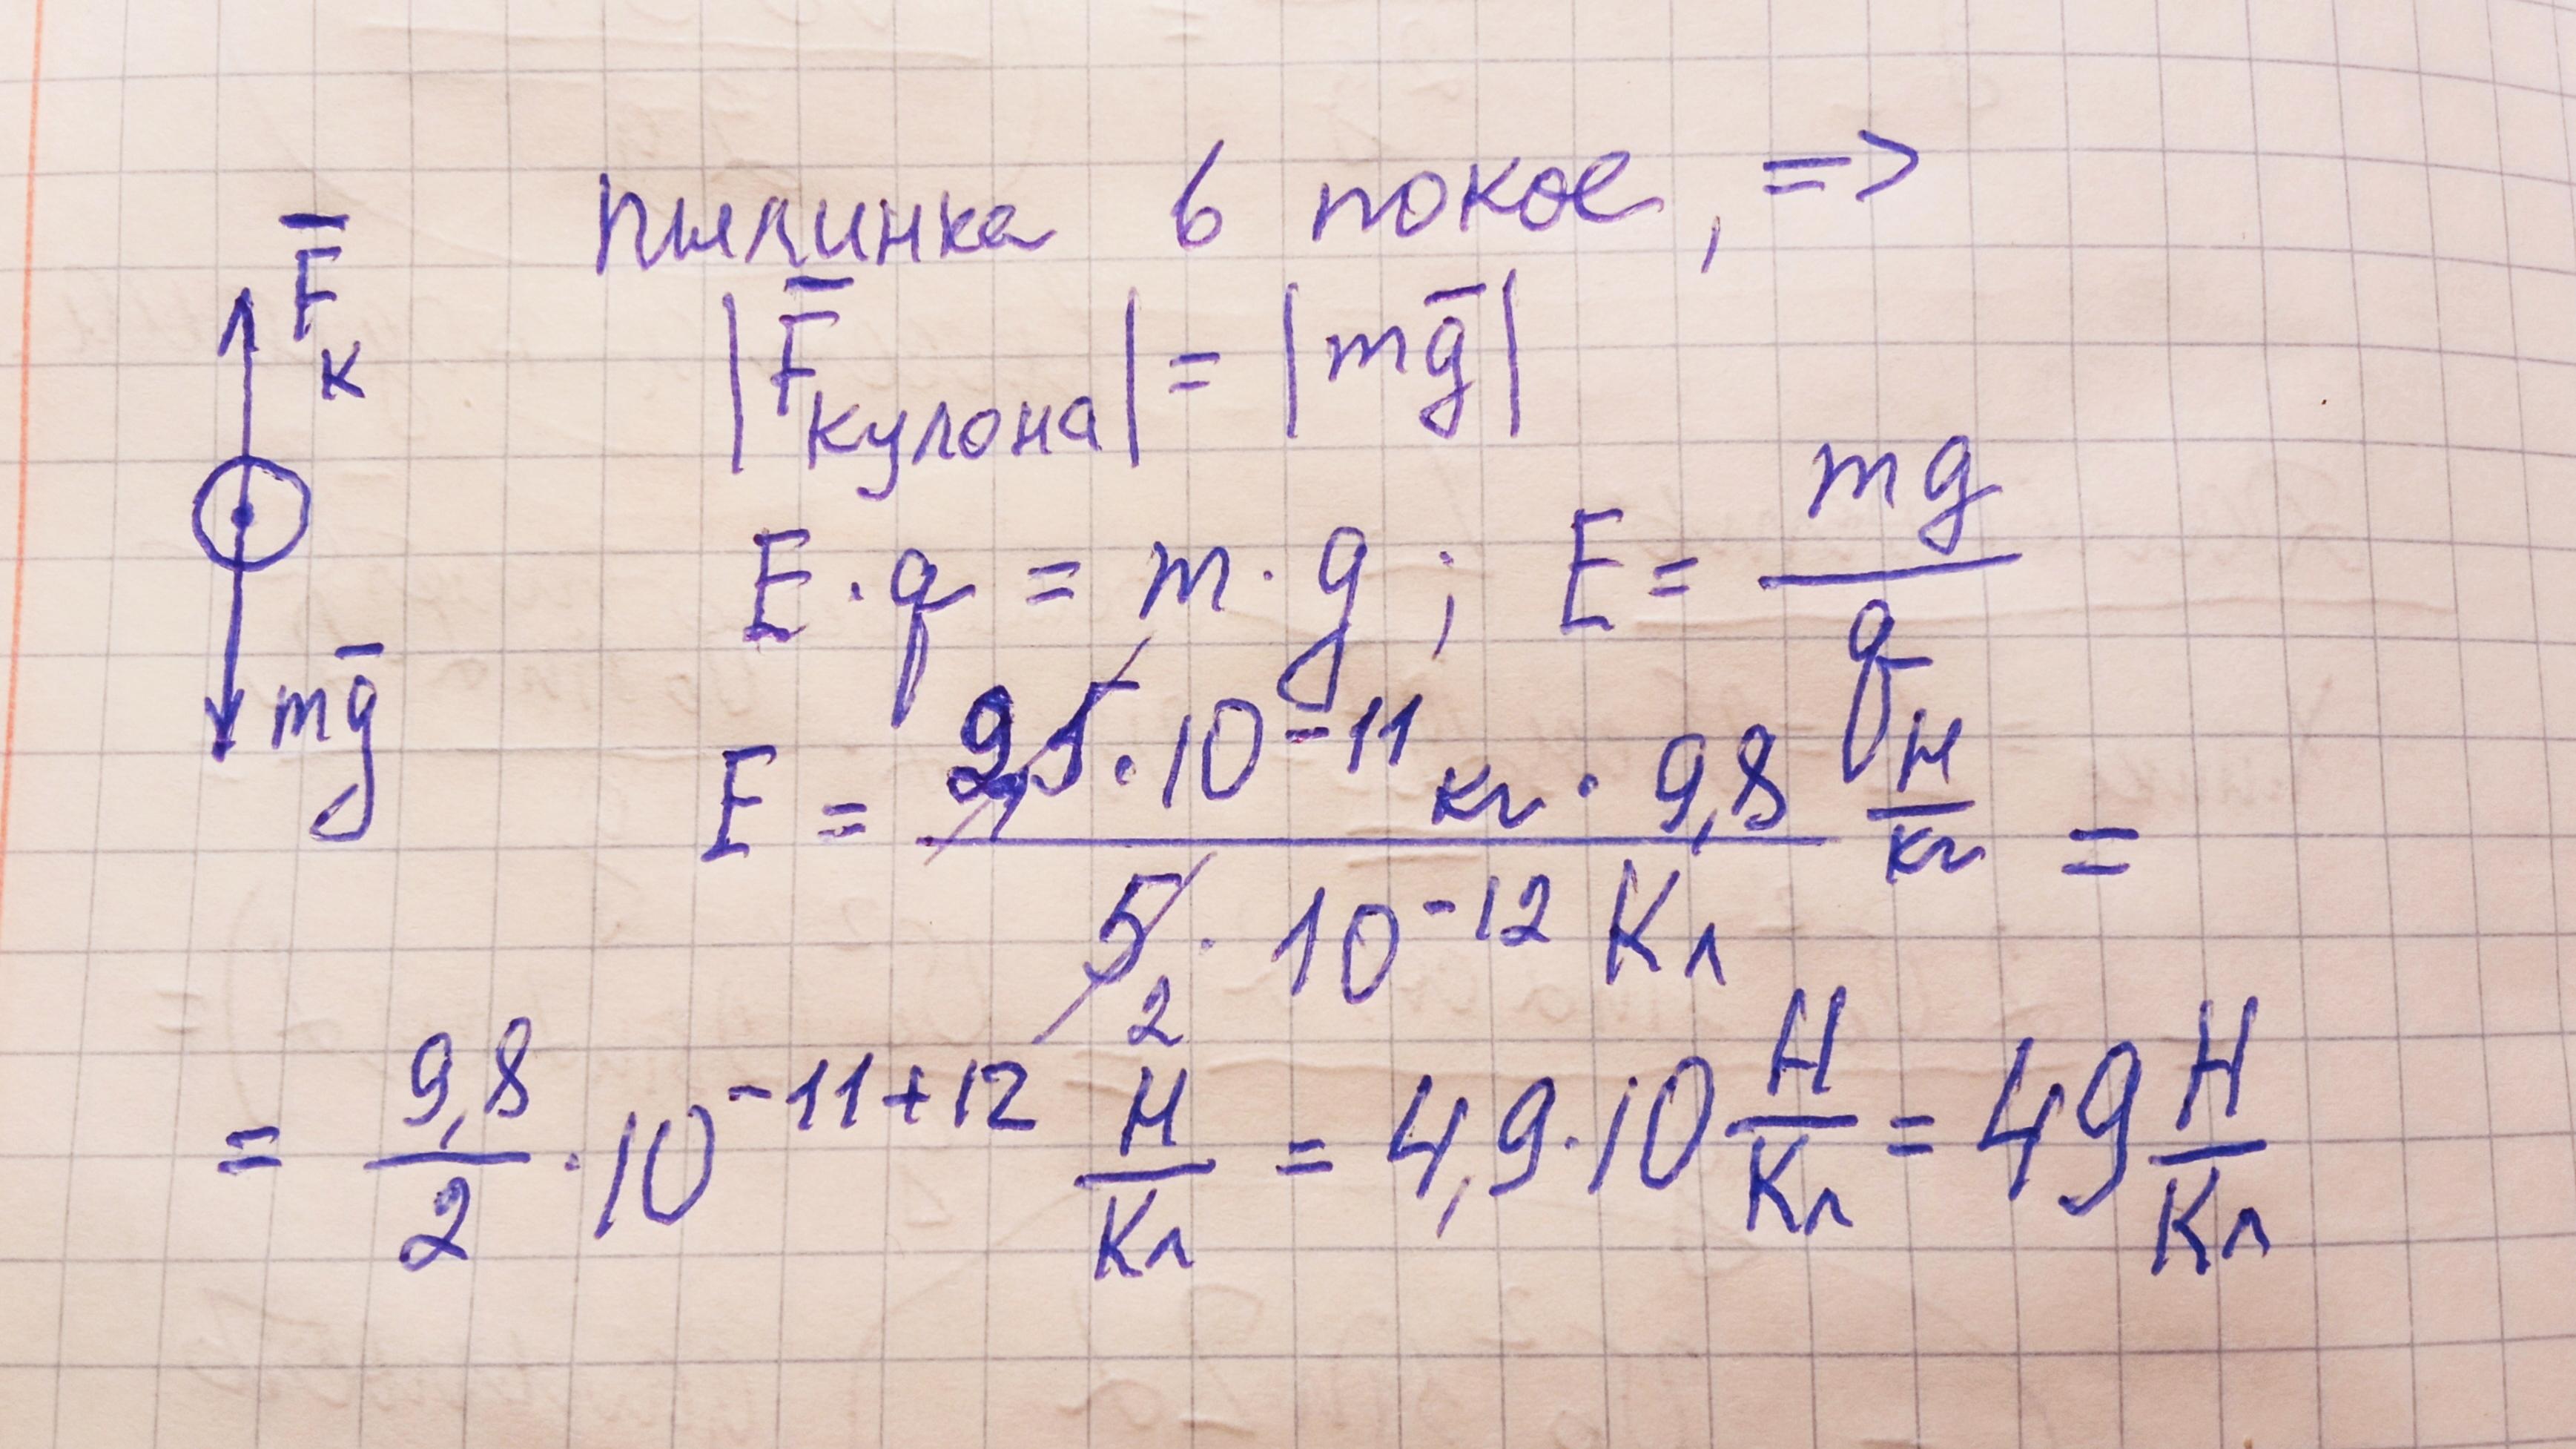 F̅к
пылинка в покое, =>
|F̅кулона| = |mg̅|
E · q = m · g ; E = mg/q
mg̅
E = (2,5 · 10⁻¹¹ кг · 9,8 Н/кг)/(5₂ · 10⁻¹² Кл) =
= 9,8/2 · 10⁻¹¹⁺¹² Н/Кл = 4,9 · 10 Н/Кл = 49 Н/Кл